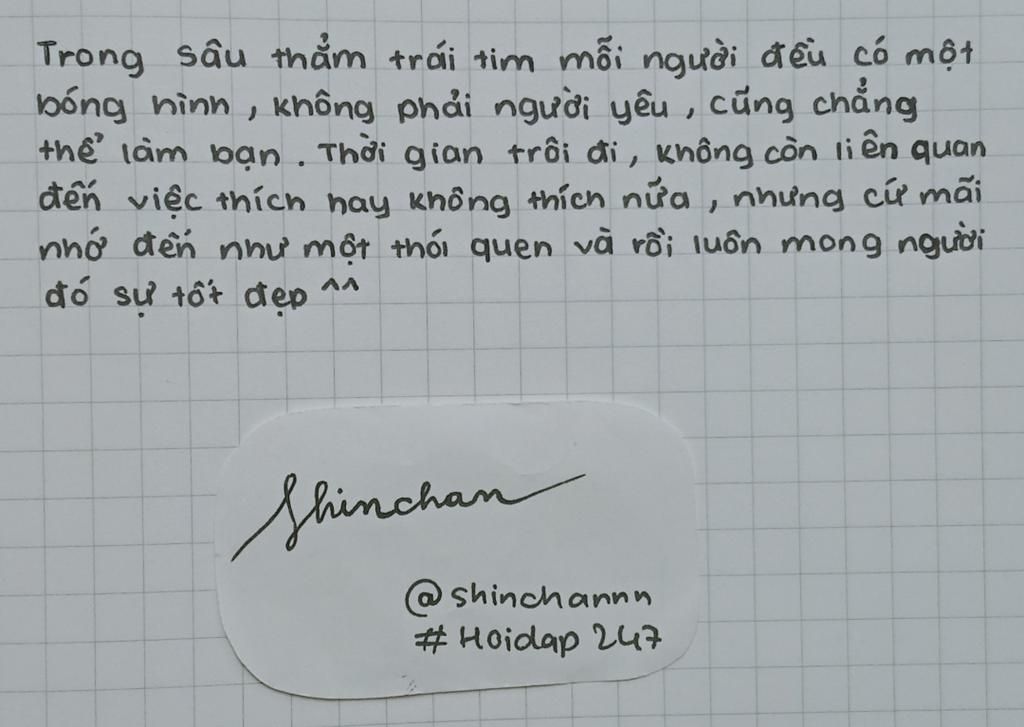 Trong sâu thẳm trái tim mỗi người đều có một
bóng hình, không phải người yêu, cũng chẳng
thể làm bạn. Thời gian trôi đi, không còn liên quan
đến việc thích hay không thích nữa, nhưng cứ mãi
nhớ đến như một thói quen và rồi luôn mong người
đó sự tốt đẹp ^^
Shinchan
@shinchannn
#Hoidap 247